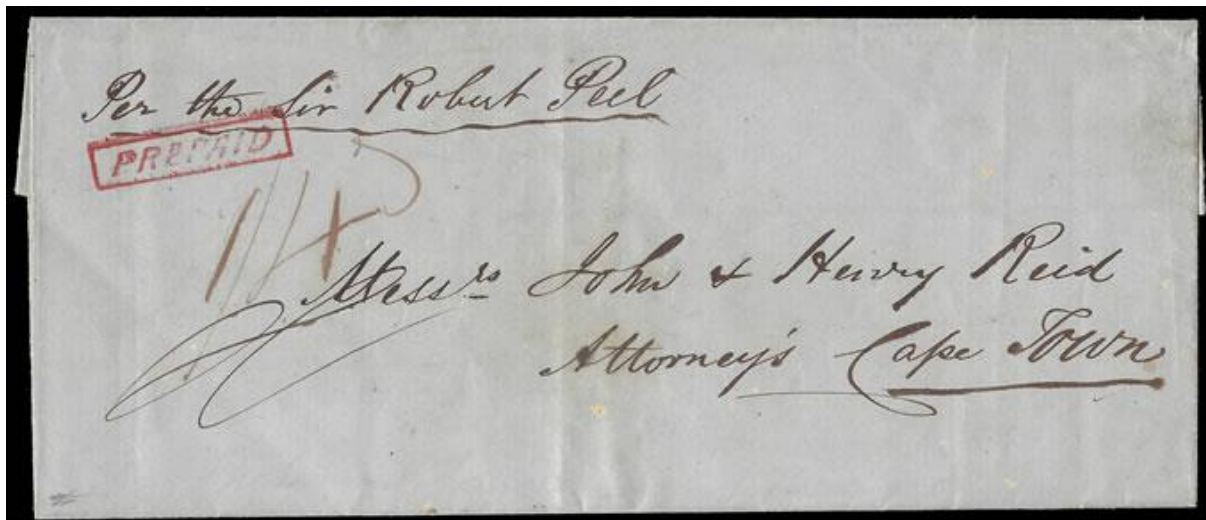 Per the Sir Robert Peel
PREPAID
1/4
Messrs John & Henry Reid
Attorney's Cape Town